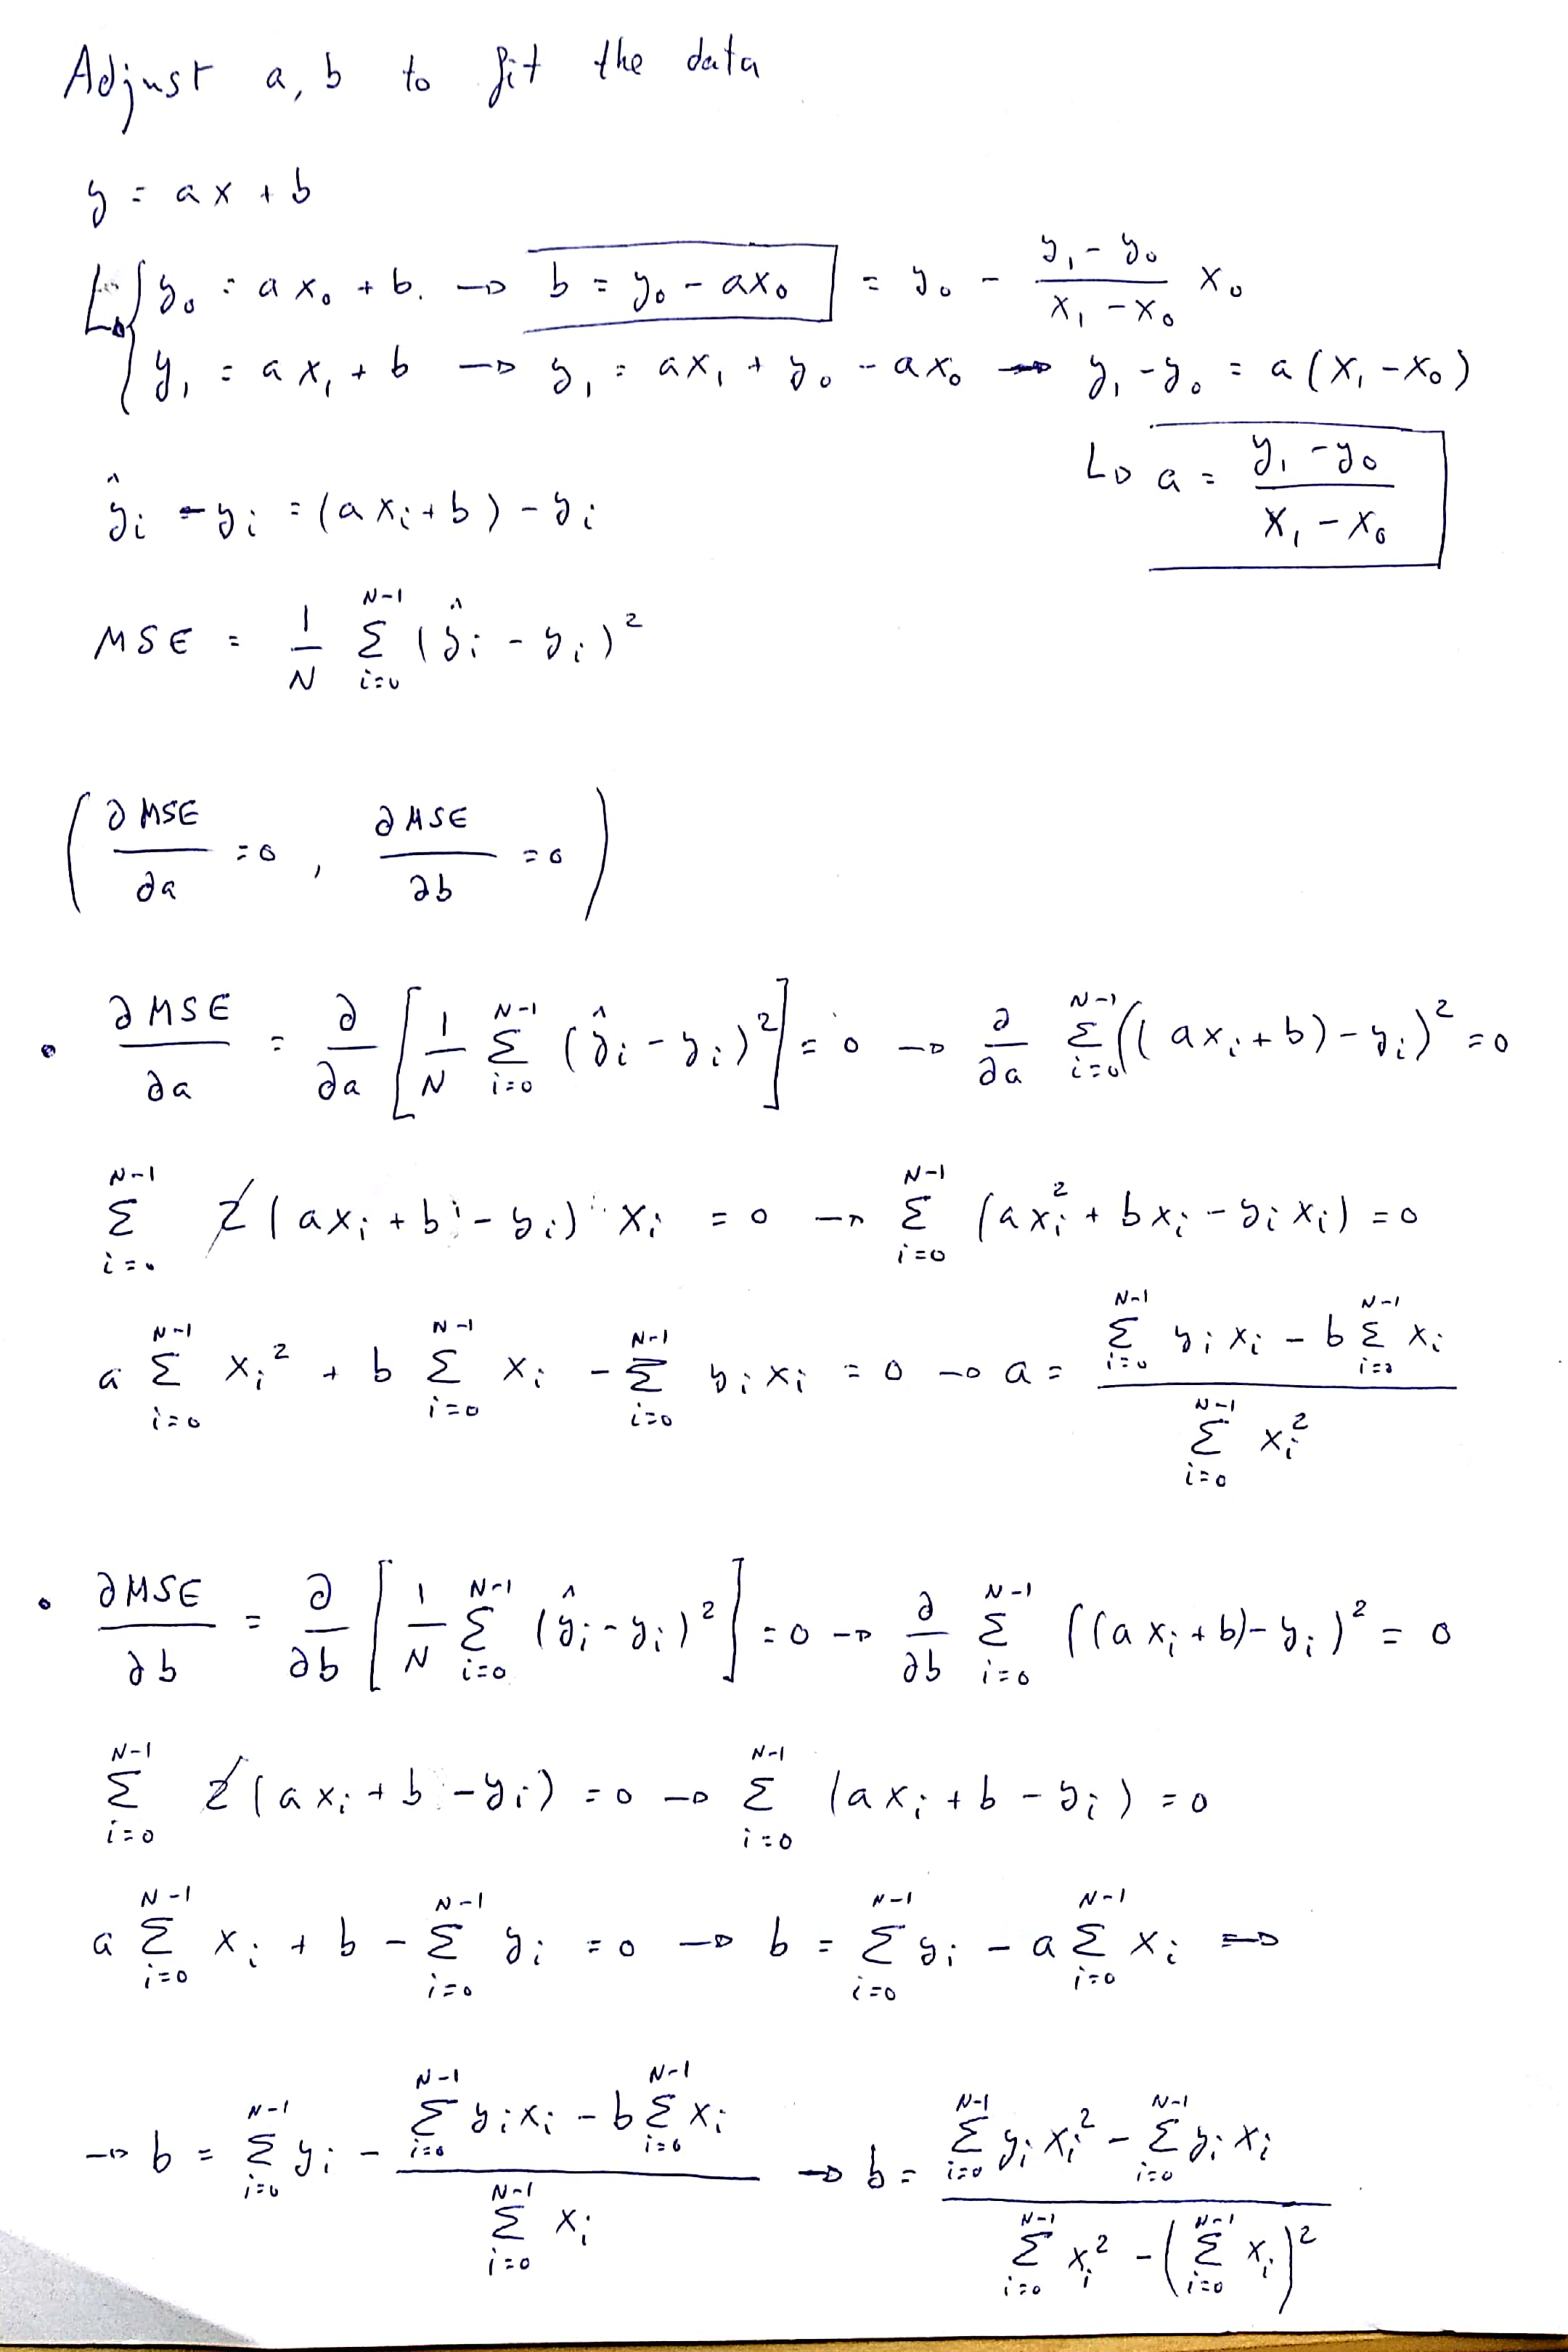 Adjust a, b to fit the data
y = ax + b
y₀ = ax₀ + b. → b = y₀ - ax₀ = y₀ - \frac{y₁ - y₀}{x₁ - x₀} x₀
y₁ = ax₁ + b → y₁ = ax₁ + y₀ - ax₀ → y₁ - y₀ = a(x₁ - x₀)
↳ a = \frac{y₁ - y₀}{x₁ - x₀}
ŷᵢ - yᵢ = (axᵢ + b) - yᵢ
MSE = \frac{1}{N} \sum_{i=0}^{N-1} (ŷᵢ - yᵢ)²
( \frac{∂MSE}{∂a} = 0 , \frac{∂MSE}{∂b} = 0 )
• \frac{∂MSE}{∂a} = \frac{∂}{∂a} [ \frac{1}{N} \sum_{i=0}^{N-1} (ŷᵢ - yᵢ)² ] = 0 → \frac{∂}{∂a} \sum_{i=0}^{N-1} ((axᵢ + b) - yᵢ)² = 0
\sum_{i=0}^{N-1} 2(axᵢ + b - yᵢ) xᵢ = 0 → \sum_{i=0}^{N-1} (axᵢ² + bxᵢ - yᵢxᵢ) = 0
a \sum_{i=0}^{N-1} xᵢ² + b \sum_{i=0}^{N-1} xᵢ - \sum_{i=0}^{N-1} yᵢxᵢ = 0 → a = \frac{\sum_{i=0}^{N-1} yᵢxᵢ - b \sum_{i=0}^{N-1} xᵢ}{\sum_{i=0}^{N-1} xᵢ²}
• \frac{∂MSE}{∂b} = \frac{∂}{∂b} [ \frac{1}{N} \sum_{i=0}^{N-1} (ŷᵢ - yᵢ)² ] = 0 → \frac{∂}{∂b} \sum_{i=0}^{N-1} ((axᵢ + b) - yᵢ)² = 0
\sum_{i=0}^{N-1} 2(axᵢ + b - yᵢ) = 0 → \sum_{i=0}^{N-1} (axᵢ + b - yᵢ) = 0
a \sum_{i=0}^{N-1} xᵢ + b - \sum_{i=0}^{N-1} yᵢ = 0 → b = \sum_{i=0}^{N-1} yᵢ - a \sum_{i=0}^{N-1} xᵢ →
→ b = \sum_{i=0}^{N-1} yᵢ - \frac{\sum_{i=0}^{N-1} yᵢxᵢ - b \sum_{i=0}^{N-1} xᵢ}{\sum_{i=0}^{N-1} xᵢ} → b = \frac{\sum_{i=0}^{N-1} yᵢxᵢ² - \sum_{i=0}^{N-1} yᵢxᵢ}{\sum_{i=0}^{N-1} xᵢ² - (\sum_{i=0}^{N-1} xᵢ)²}